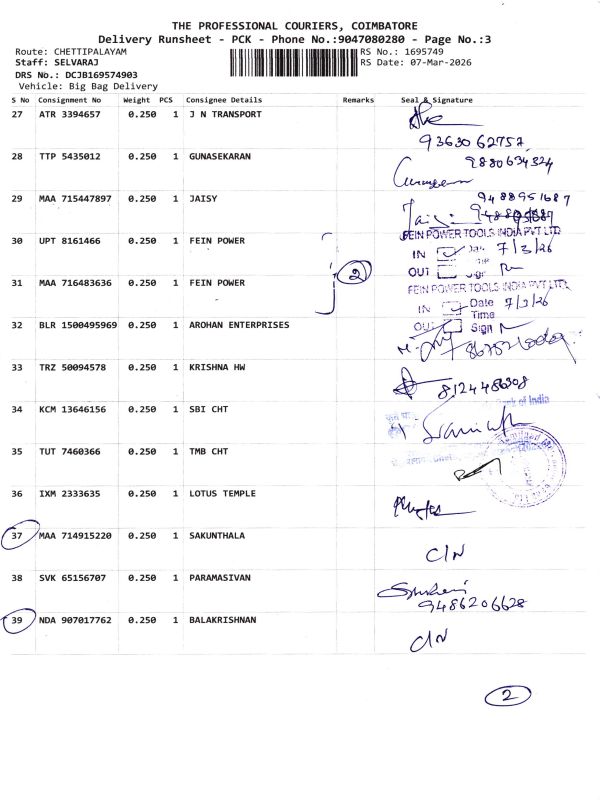 THE PROFESSIONAL COURIERS, COIMBATORE
Delivery Runsheet - PCK - Phone No.:9047080280 - Page No.:3
Route: CHETTIPALAYAM RS No.: 1695749
Staff: SELVARAJ RS Date: 07-Mar-2026
DRS No.: DCJB169574903
Vehicle: Big Bag Delivery
S No Consignment No Weight PCS Consignee Details Remarks Seal & Signature
27 ATR 3394657 0.250 1 J N TRANSPORT
9363062757
28 TTP 5435012 0.250 1 GUNASEKARAN 9880634324
29 MAA 715447897 0.250 1 JAISY 9488951687
30 UPT 8161466 0.250 1 FEIN POWER FEIN POWER TOOLS INDIA PVT LTD
IN 7/3/26
OUT Sign
2
31 MAA 716483636 0.250 1 FEIN POWER FEIN POWER TOOLS INDIA PVT LTD
IN Date 7/3/26
Time
OUT Sign
32 BLR 1500495969 0.250 1 AROHAN ENTERPRISES
33 TRZ 50094578 0.250 1 KRISHNA HW
8124486308
34 KCM 13646156 0.250 1 SBI CHT of India
35 TUT 7460366 0.250 1 TMB CHT
36 IXM 2333635 0.250 1 LOTUS TEMPLE
37 MAA 714915220 0.250 1 SAKUNTHALA
C/N
38 SVK 65156707 0.250 1 PARAMASIVAN
9486206628
39 NDA 907017762 0.250 1 BALAKRISHNAN
C/N
2